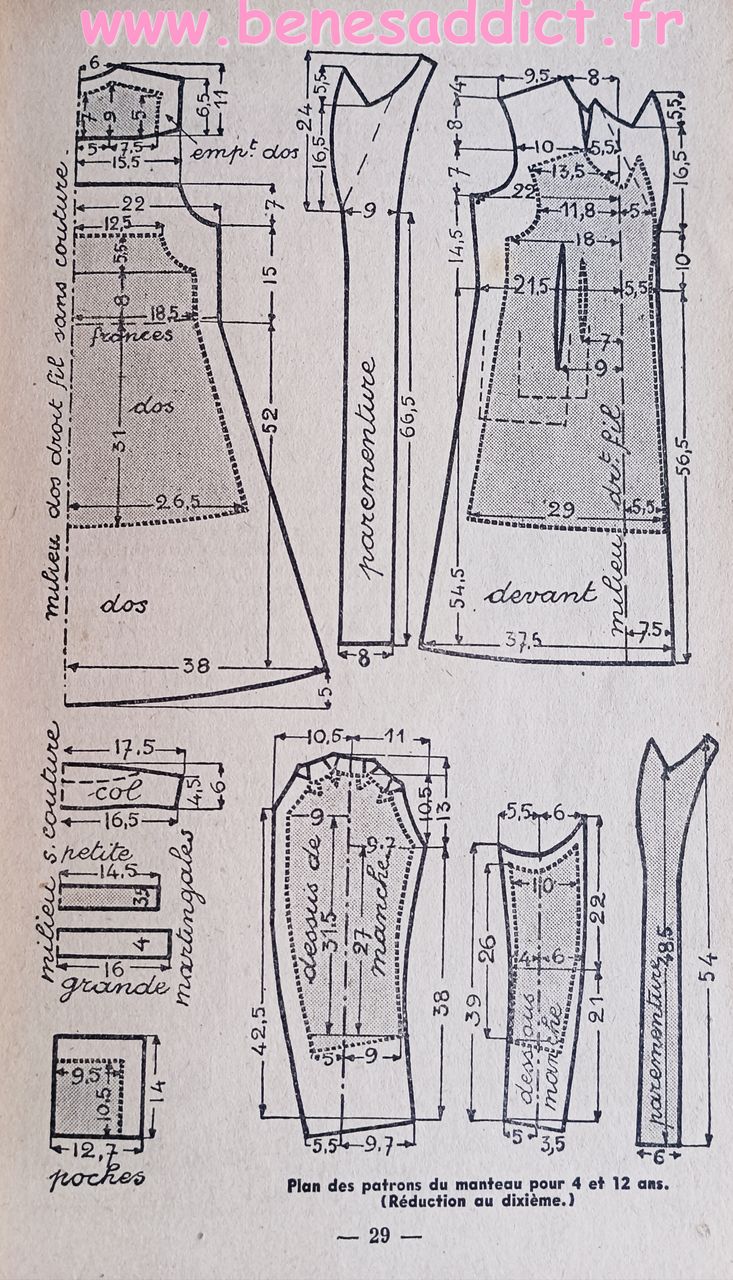 www.benesaddict.fr
6
7
9
5
6,5
11
5
7,5
15,5
empt. dos
milieu dos droit fil sans couture
22
7
12,5
5,5
8
15
18,5
fronces
dos
31
52
26,5
dos
38
5
24
5,5
16,5
9
parementure
66,5
8
4
9,5
8
8
5,5
10
5,5
16,5
7
13,5
22
11,8
5
14,5
18
10
21,5
5,5
7
9
drt. fil
56,5
29
5,5
54,5
devant
milieu
7,5
37,5
17,5
col
4,5
6
16,5
milieu s. couture
petite
14,5
3,5
4
16
grande
martingales
9,5
10,5
14
12,7
poches
10,5
11
10,5
13
9
9,7
dessus de
manche
31,5
27
42,5
38
5
9
5,5
9,7
5,5
6
10
22
26
4
6
39
21
dessous
manche
5
3,5
48,5
54
parementure
6
Plan des patrons du manteau pour 4 et 12 ans.
(Réduction au dixième.)
— 29 —